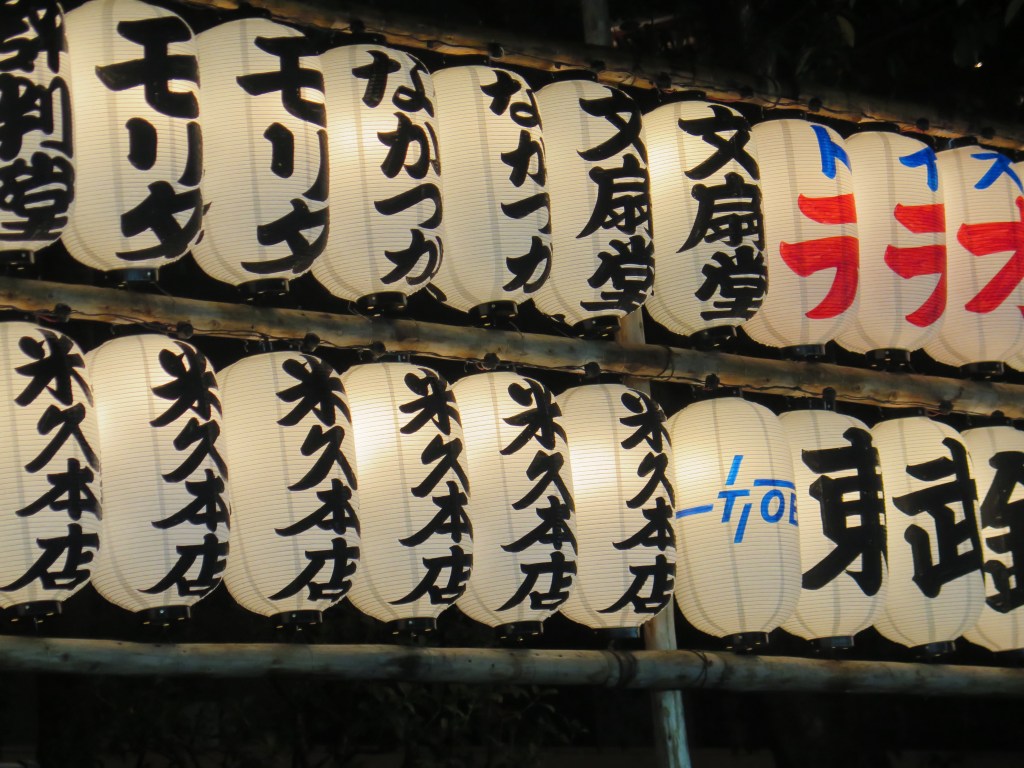 判堂
モリタ
モリタ
なかつか
なかつか
文扇堂
文扇堂
ト
ラ
イ
ラ
ス
オ
米久本店
米久本店
米久本店
米久本店
米久本店
米久本店
東
武